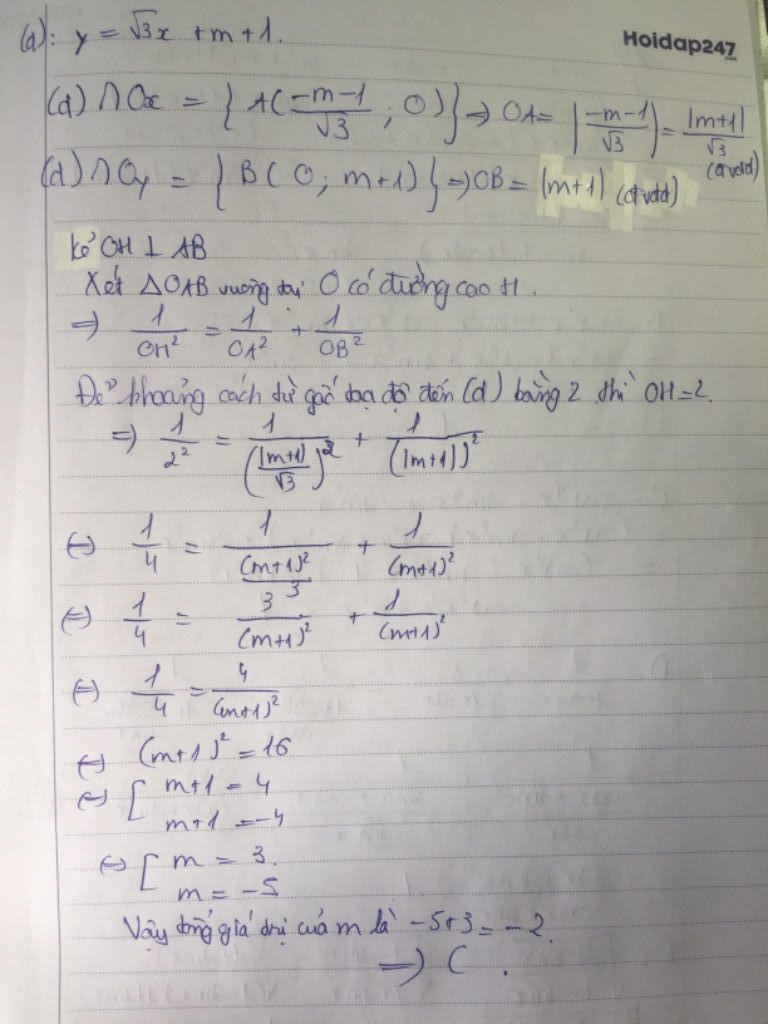 (d): y = √3x + m + 1.
Hoidap247
(d) ∩ Ox = { A( (-m-1)/√3 ; 0) } => OA = |(-m-1)/√3| = |m+1|/√3 (đvđd)
(d) ∩ Oy = { B( 0; m+1) } => OB = |m+1| (đvđd)
Kẻ OH ⊥ AB
Xét △OAB vuông tại O có đường cao H.
=> 1/OH² = 1/OA² + 1/OB²
Để khoảng cách từ gốc toạ độ đến (d) bằng 2 thì OH = 2.
=> 1/2² = 1/(|m+1|/√3)² + 1/(|m+1|)²
<=> 1/4 = 1/((m+1)²/3) + 1/(m+1)²
<=> 1/4 = 3/(m+1)² + 1/(m+1)²
<=> 1/4 = 4/(m+1)²
<=> (m+1)² = 16
<=> [ m+1 = 4
m+1 = -4
<=> [ m = 3.
m = -5
Vậy tổng giá trị của m là -5+3 = -2.
=> C.